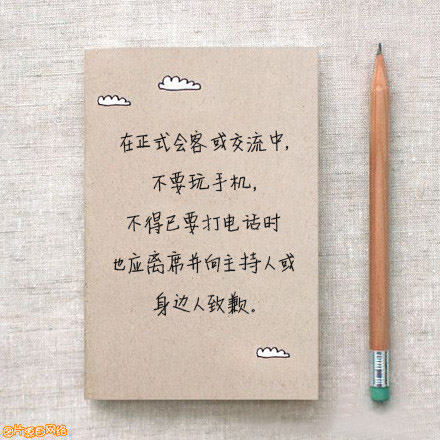 在正式会客或交流中,
不要玩手机,
不得已要打电话时
也应离席并向主持人或
身边人致歉。
图片来自网络